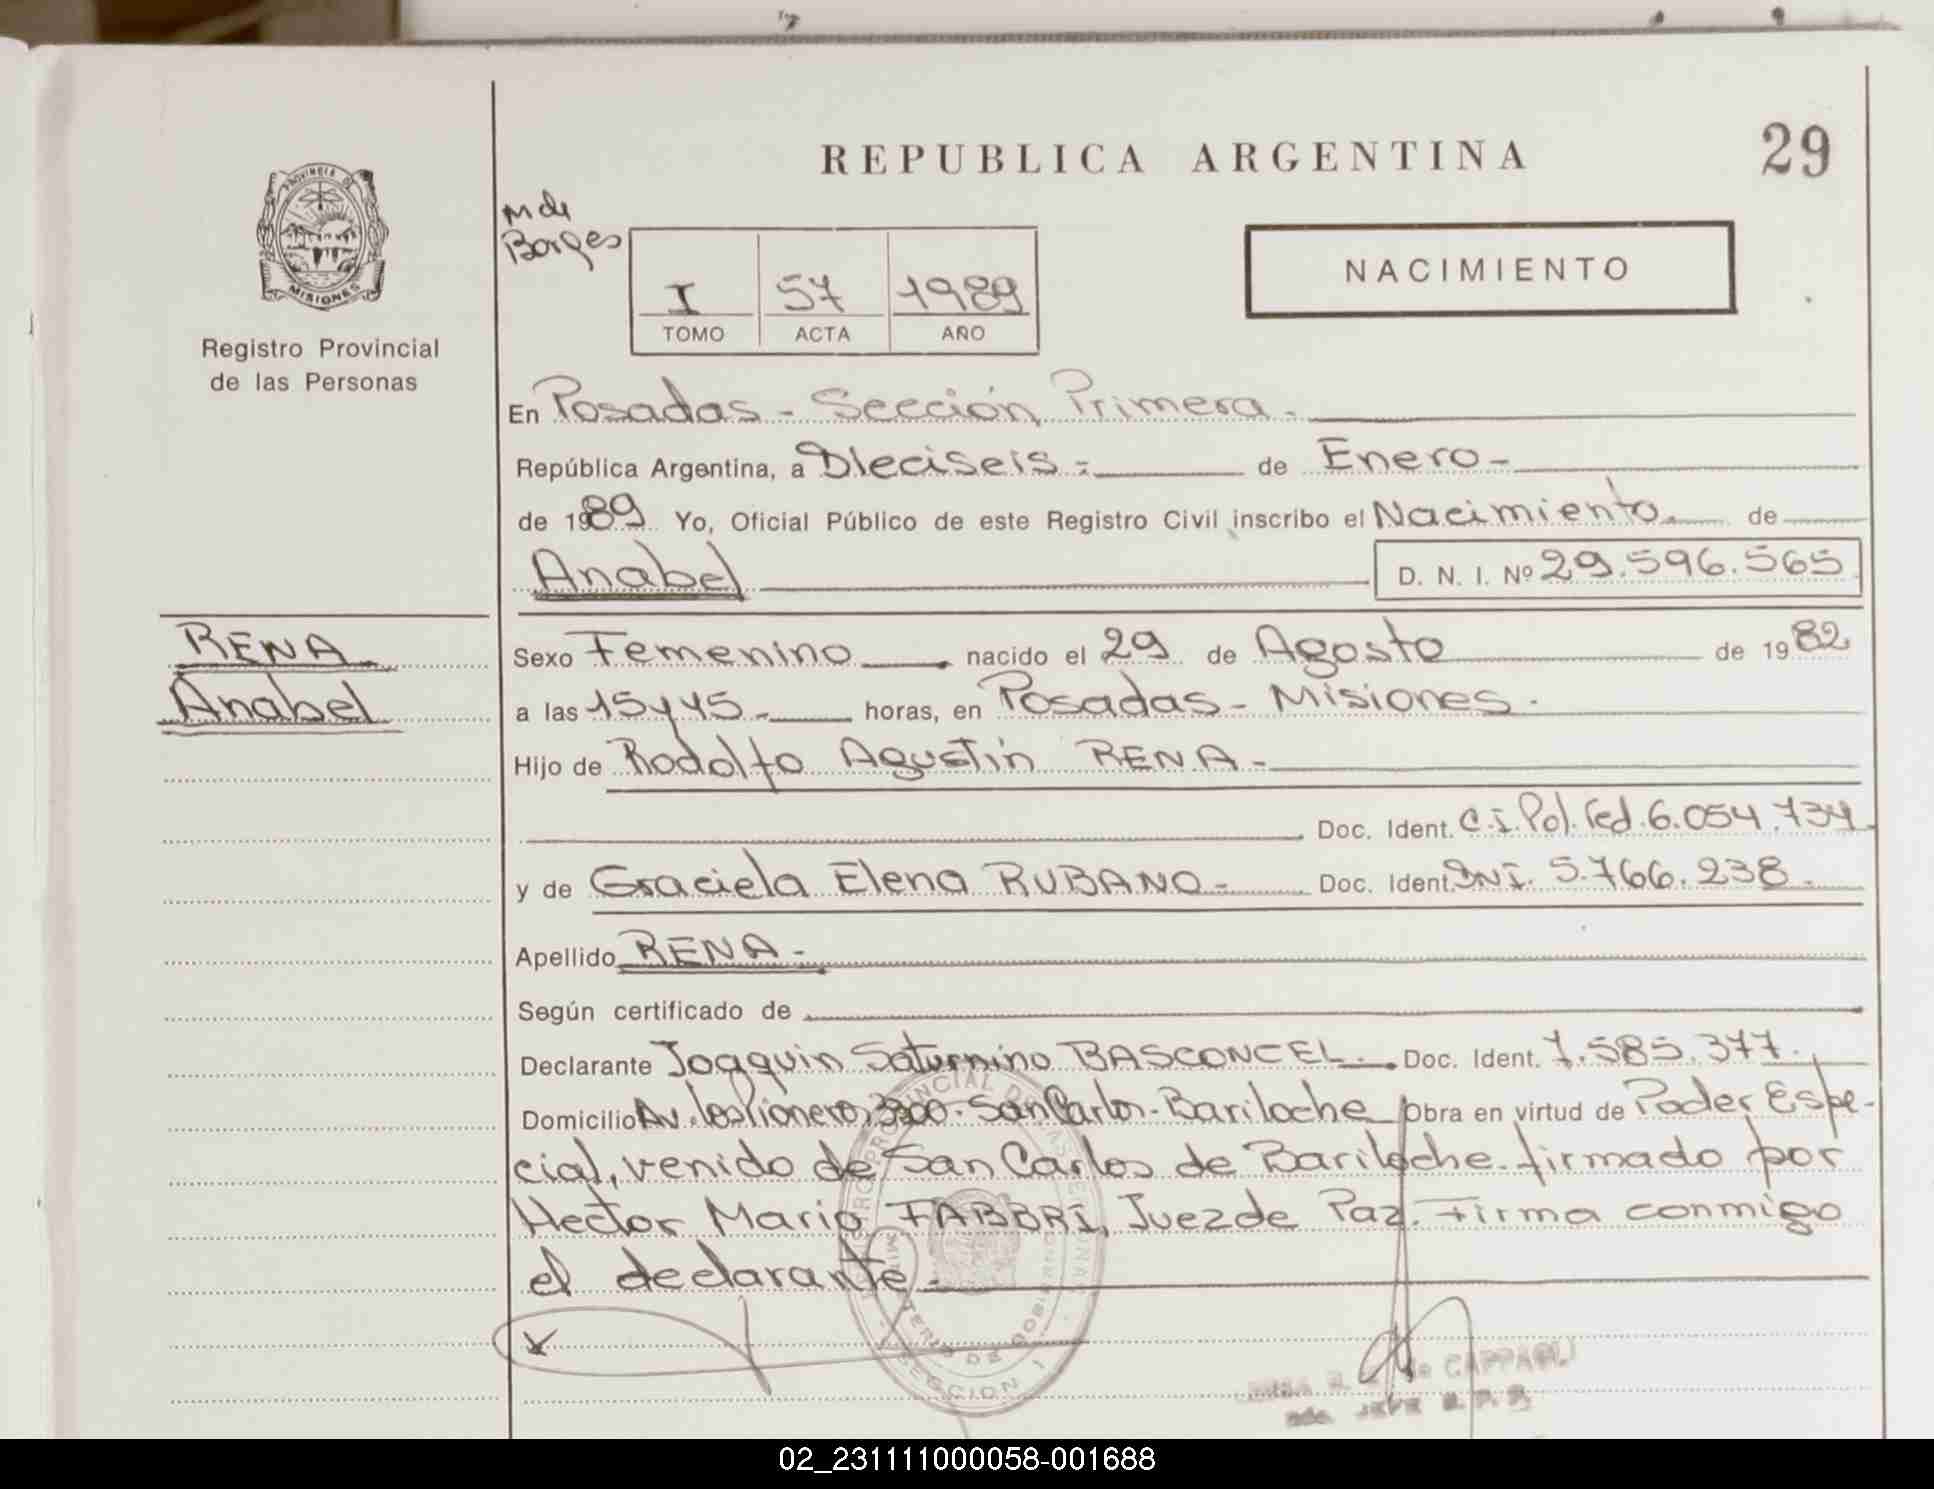 REPUBLICA ARGENTINA
29
PROVINCIA DE
MISIONES
Registro Provincial
de las Personas
M de
Borges
I 57 1989
TOMO ACTA AÑO
NACIMIENTO
En Posadas - Sección Primera.
República Argentina, a Dieciseis.- de Enero-
de 1989 Yo, Oficial Público de este Registro Civil inscribo el Nacimiento de
Anabel D. N. I. Nº 29.596.565
RENA
Anabel
Sexo Femenino nacido el 29 de Agosto de 1982
a las 15 y 45.- horas, en Posadas - Misiones.
Hijo de Rodolfo Agustín RENA-
Doc. Ident. C.I. Pol. Fed. 6.054.734
y de Graciela Elena RUBANO- Doc. Ident. DNI. 5.766.238.
Apellido RENA-
Según certificado de
Declarante Joaquin Saturnino BASCONCEL. Doc. Ident. 7.585.377.
Domicilio Av. los Pioneros, 3300. San Carlos. Bariloche Obra en virtud de Poder Espe-
cial, venido de San Carlos de Bariloche. firmado por
Hector Mario FABBRI, Juez de Paz. Firma conmigo
el declarante-
MINISTERIO DE GOBIERNO
SECCION 1
CAPPAGLI
JEFE R. P. P.
02_231111000058-001688